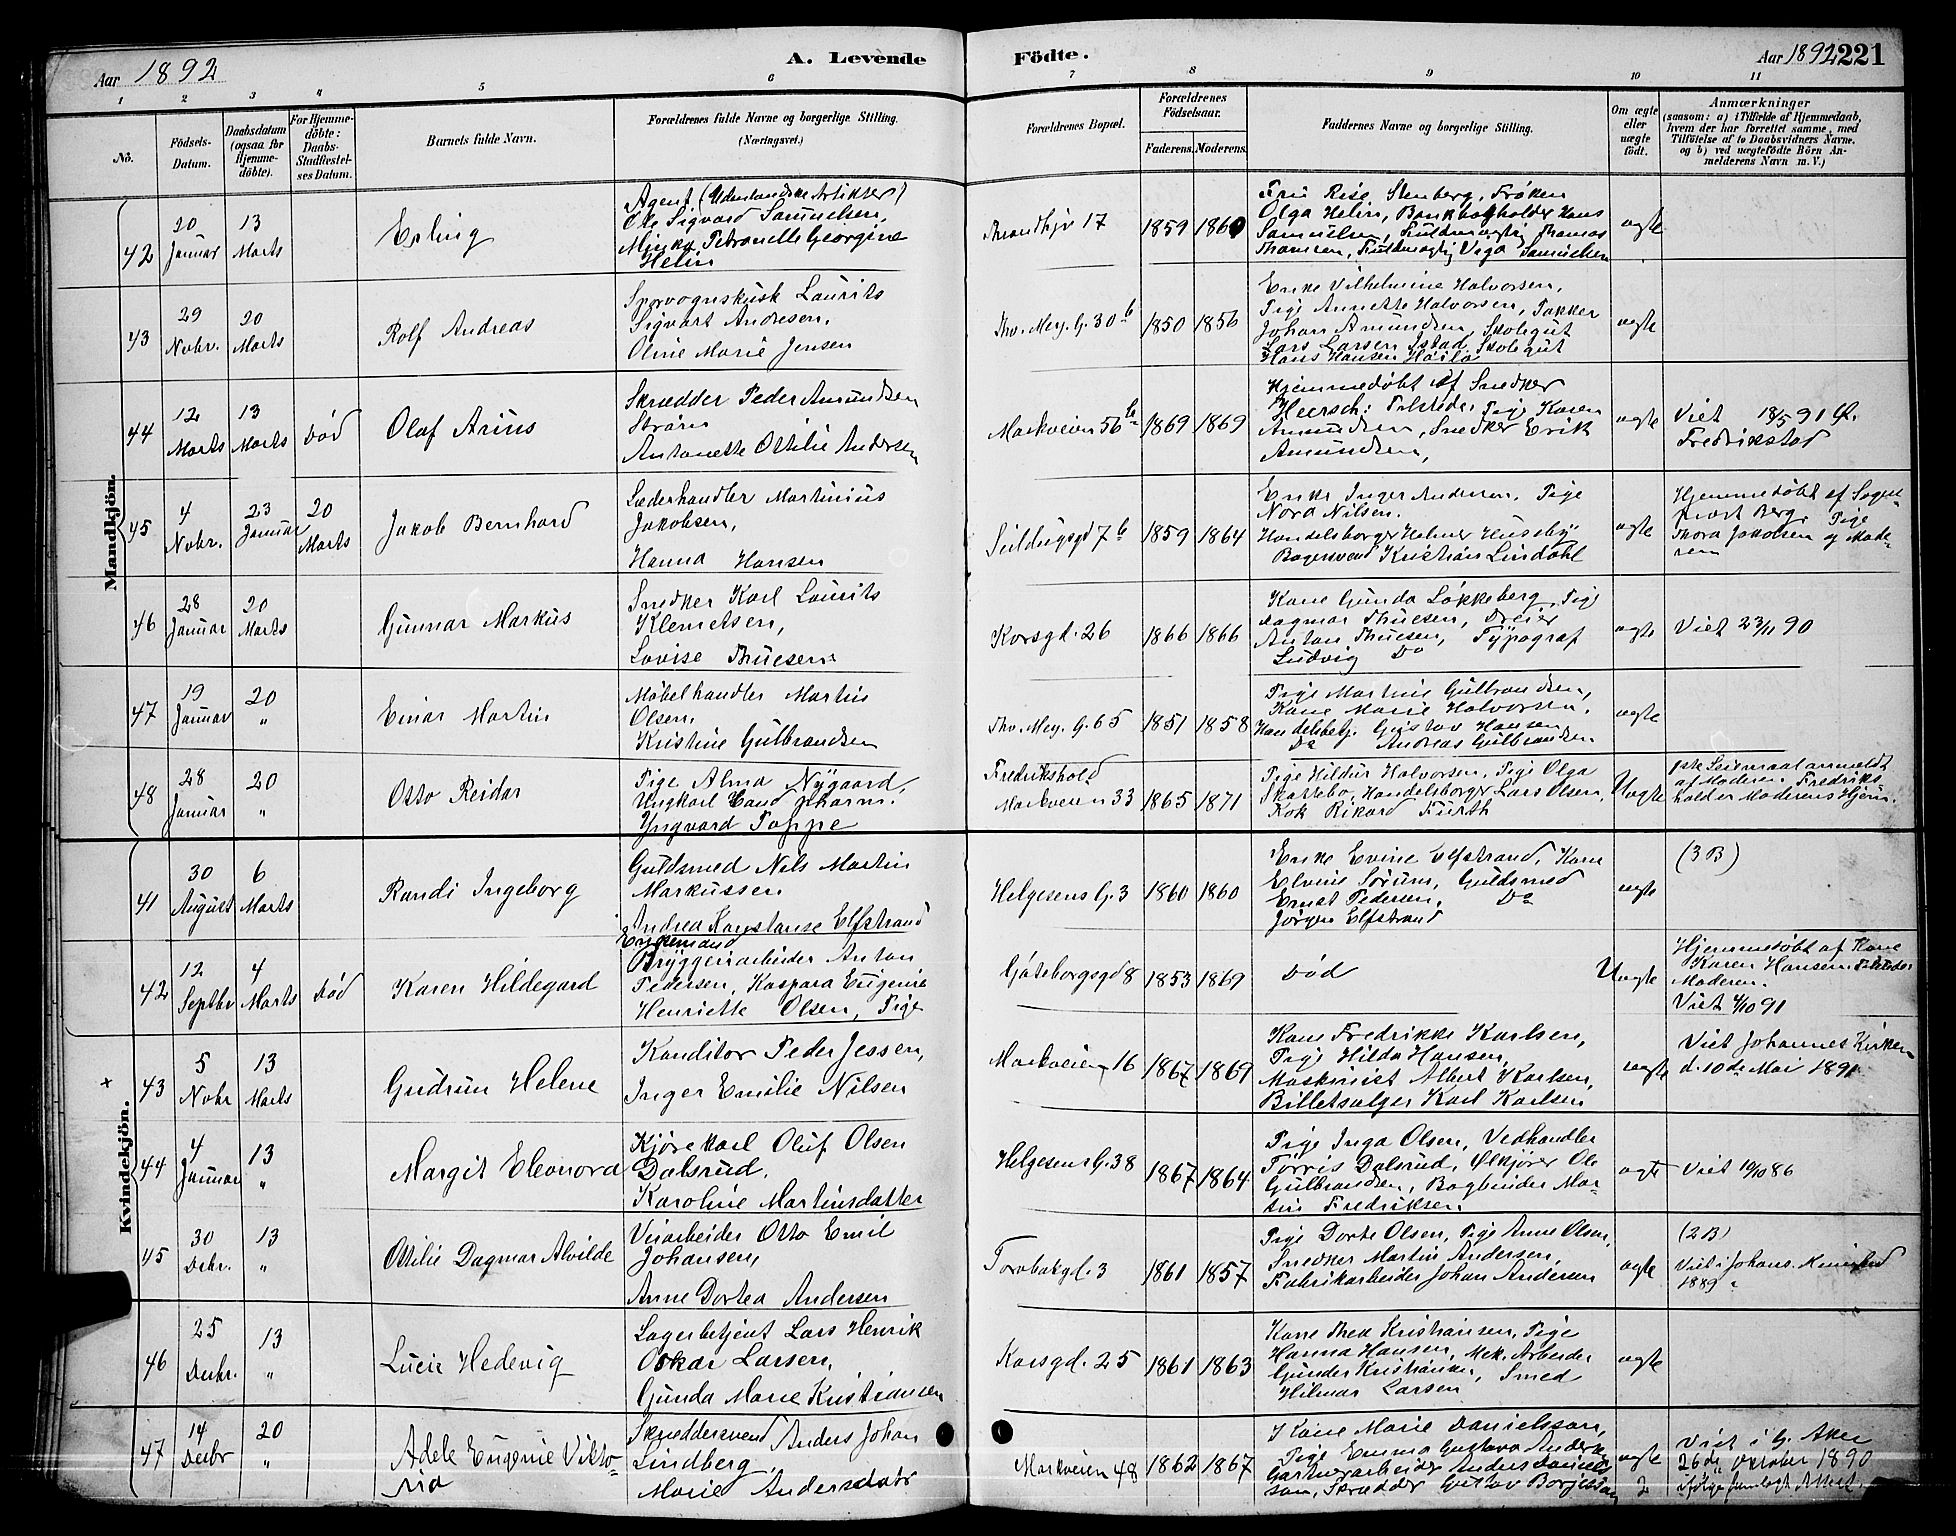 Aar 1892
A. Levende
Födte.
Aar 1892
221
1 2 3 4 5 6 7 8 9 10 11
No.
Födsels-Datum.
Daabsdatum (ogsaa for Hjemme-döbte).
For Hjemme-döbte: Daabs-Stadfæstel-ses Datum.
Barnets fulde Navn.
Forældrenes fulde Navne og borgerlige Stilling. (Næringsvei.)
Forældrenes Bopæl.
Forældrenes Födselsaar.
Faderens. Moderens.
Faddernes Navne og borgerlige Stilling.
Om ægte eller uægte födt.
Anmærkninger
(saasom: a) i Tilfælde af Hjemmedaab, hvem der har forrettet samme, med Tilföielse af to Daabsvidners Navne, og b) ved uægtefödte Börn An-melderens Navn m. V.)
Mandkjön.
42
20 Januar
13 Marts
Erling
Agent (Udenlandske Artikler)
Ole Sigvard Samuelsen,
Minka Petronelle Georgine
Helin
17
1859 1860
Olga Helin, Bankbogholder Hans
Samuelsen, Fuldmægtig Thomas
Fuldmægtig Samuelsen
ægte
43
29 Novbr.
20 Marts
Rolf Andreas
Sporvognskusk Laurits
Sigvart Andresen,
Oline Marie Jensen
Thv. Mey. G. 30 b
1850 1856
Enke Vilhelmine Halvorsen,
Pige Annette Halvorsen, Pakker
Johan Amundsen, Skolegut
Lars Larsen Skolegut
Hans Hansen
ægte
44
12 Marts
13 Marts
Død
Olaf Arius
Skrædder Peder Amundsen
Antonette Ottilie Andersen
Markveien 56 b
1869 1869
Hjemmedøbt af Snedker
Pige Karen
Amundsen, Snedker Erik
Amundsen,
ægte
Viet 18/5 91
Fredrikstad
45
4 Novbr.
23 Januar
20 Marts
Jakob Bernhard
Læderhandler Martinius
Jakobsen,
Hanna Hansen
Seildugsgd 7 b
1859 1864
Enke Inger Andersen, Pige
Nora Nilsen.
Handelsborger Helmer Huseby
Bagersvend Kristian Lindahl
ægte
Hjemmedøbt af Sogne-
præst Berg. Pige
Thora Jakobsen og Mode-
ren
46
28 Januar
20 Marts
Gunnar Markus
Snedker Karl Laurits
Klemetsen,
Lovise Thuesen
Korsgd. 26
1866 1866
Kone Gunda Løkkeberg, Pige
Dagmar Thuesen, Dreier
Anton Thuesen, Typograf
Ludvig Do
ægte
Viet 23/11 90
47
19 Januar
20 "
Einar Martin
Møbelhandler Martin
Olsen,
Kristine Gulbrandsen
Thv. Mey. G. 65
1851 1858
Pige Martine Gulbrandsen,
Kone Marie Halvorsen,
Handelsbetj. Gustav Hansen
Do Andreas Gulbrandsen
ægte
48
28 Januar
20 "
Otto Reidar
Pige Alma Nygaard,
Ungkarl Cand. pharm.
Yngvard Poppe
Fredrikshald
Markveien 33
1865 1871
Pige Hildur Halvorsen, Pige Olga
Skattebo, Handelsborger Lars Olsen,
Kok Rikard Furth
Uægte
1ste Leiermaal anmeldt
af Moderen. Fredriks
hald er Moderens Hjem.
Kvindekjön.
41
30 August
6 Marts
Randi Ingeborg
Guldsmed Nils Martin
Markussen
Andrea Konstanse Elfstrand
Helgesens G. 3
1860 1860
Enke Evine Elfstrand, Kone
Elvine Sørum, Guldsmed
Ernst Pedersen, Do
Jørgen Elfstrand
ægte
(3 B)
42
12 Septbr
4 Marts
Død
Karen Hildegard
Enkemand
Bryggeriarbeider Anton
Pedersen, Kaspara Eugenie
Henriette Olsen, Pige
Gøteborgsgd 8
1853 1869
Død
Uægte
Hjemmedøbt af Kone
Karen Hansen Tilstede:
Moderen.
Viet 4/10 91
43
5 Novbr
13 Marts
Gudrun Helene
Konditor Peder Jessen,
Inger Emilie Nilsen
Markveien 16
1867 1869
Kone Fredrikke Karlsen,
Pige Hilda Hansen,
Maskinist Albert Karlsen,
Billetsælger Karl Karlsen
uægte
Viet Johannes Kirken
d. 10de Mai 1891
44
4 Januar
13 "
Margit Eleonora
Kjørekarl Oluf Olsen
Dalsrud,
Karoline Martinsdatter
Helgesens G. 38
1867 1864
Pige Inga Olsen, Vedhandler
Torris Dalsrud, Ølkjører Ole
Gulbrandsen, Bogbinder Mar-
tin Fredriksen.
ægte
Viet 19/10 86
45
30 Decbr.
13 "
Ottilie Dagmar Alvilde
Veiarbeider Otto Emil
Johansen,
Anne Dortea Andersen
Torvbakgd. 3
1861 1857
Pige Dorte Olsen, Pige Anne Olsen,
Snedker Martin Andersen
Fabrikarbeider Johan Andersen
ægte
(2 B)
Viet i Johans.
1889
46
25 Decbr.
13 "
Lucie Hedevig
Lagerbetjent Lars Henrik
Oskar Larsen,
Gunda Marie Kristiansen
Korsgd. 25
1861 1863
Kone Thea Kristiansen, Pige
Hanna Hansen, Mek. Arbeider
Gunder Kristiansen, Smed
Hilmar Larsen
ægte
47
14 Decbr
20 "
Adele Eugenie Vikto-
ria
Skræddersvend Anders Johan
Lindberg,
Marie Andersdatr
Markveien 48
1862 1867
Kone Marie Danielsson,
Pige Emma Gustava
Gartnerarbeider Anders Daniels
son, Skrædder Gustav Borjesson
ægte
2
Viet i G. Aker
26de Oktober 1890
ifølge fremlagt Attest.